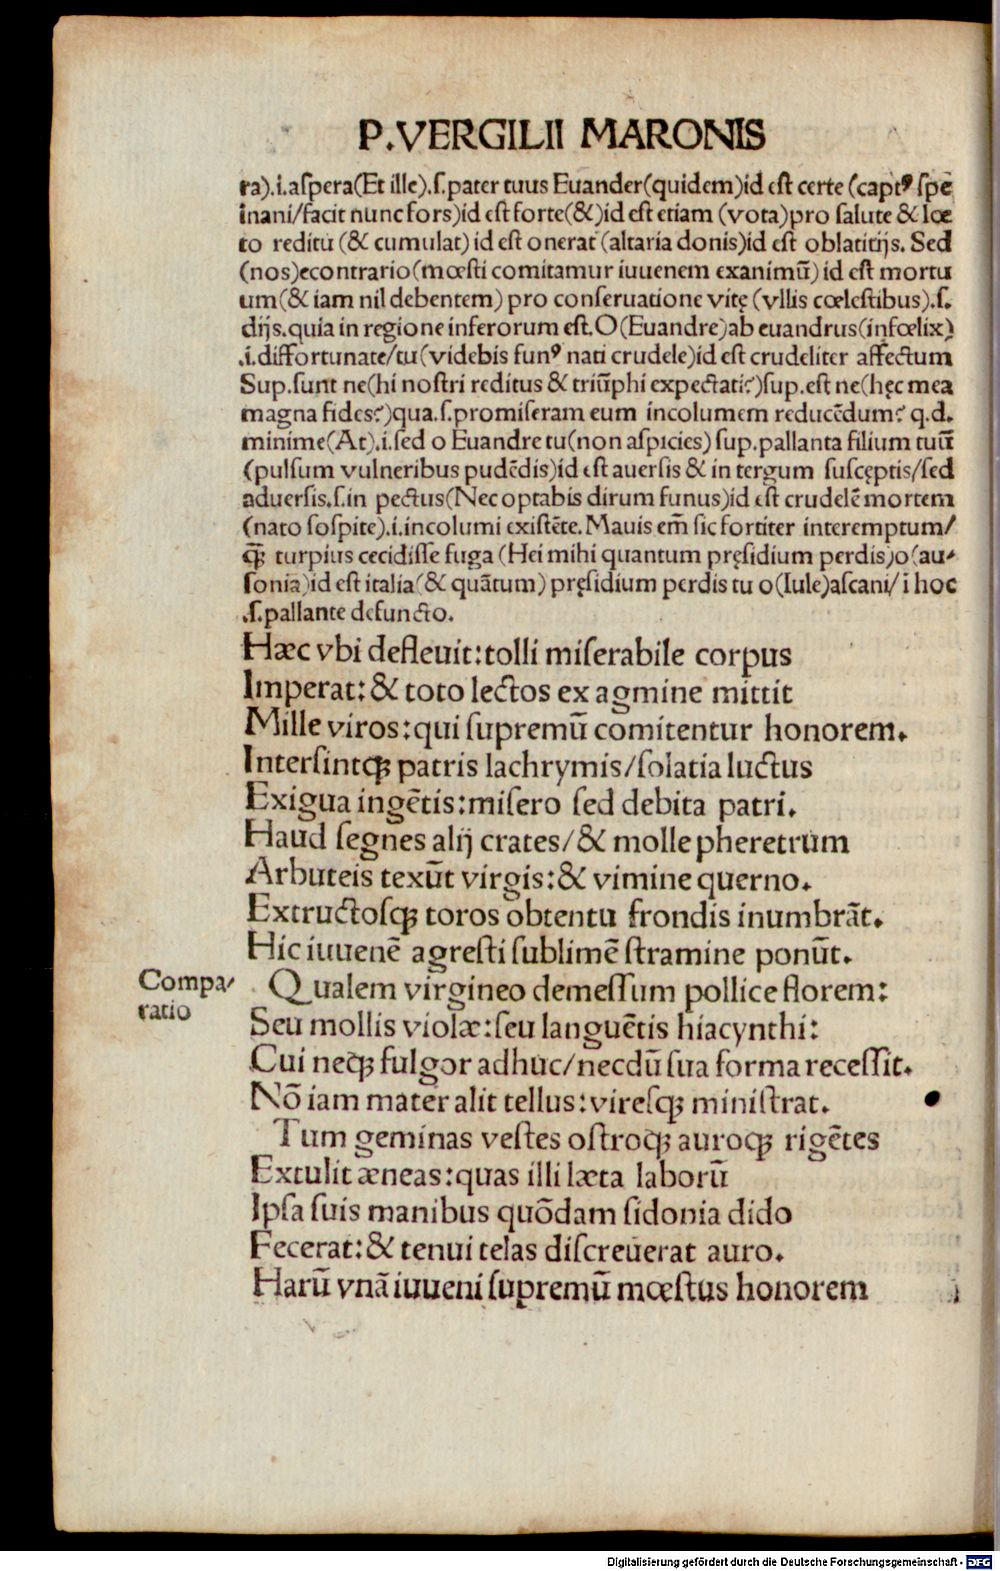 P.VERGILII MARONIS
ra).i.aſpera(Et ille).ſ.pater tuus Euander(quidem)id eſt certe (captꝰ ſpē
inani/facit nunc fors)id eſt forte(&)id eſt etiam (vota)pro ſalute & lœ
to reditu (& cumulat) id eſt onerat (altaria donis)id eſt oblatitijs. Sed
(nos)econtrario(mœſti comitamur iuuenem exanimū) id eſt mortu
um(& iam nil debentem) pro conſeruatione vitę (vllis cœleſtibus).ſ.
dijs.quia in regione inferorum eſt.O(Euandre)ab euandrus(infœlix)
.i.diffortunate/tu(videbis funꝰ nati crudele)id eſt crudeliter affectum
Sup.ſunt ne(hi noſtri reditus & triūphi expectati?)ſup.eſt ne(hęc mea
magna fides?)qua.ſ.promiſeram eum incolumem reducēdum? q.d.
minime(At).i.ſed o Euandre tu(non aſpicies) ſup.pallanta filium tuū
(pulſum vulneribus pudēdis)id eſt auerſis & in tergum ſuſcęptis/ſed
aduerſis.ſ.in pectus(Nec optabis dirum funus)id eſt crudelē mortem
(nato ſoſpite).i.incolumi exiſtēte.Mauis em̄ ſic fortiter interemptum/
q̄ꝫ turpius cecidiſſe fuga (Hei mihi quantum pręſidium perdis)o(au-
ſonia)id eſt italia(& quātum) pręſidium perdis tu o(Iule)aſcani/ i hoc
.ſ.pallante defuncto.
Hæc vbi defleuit:tolli miſerabile corpus
Imperat:& toto lectos ex agmine mittit
Mille viros:qui ſupremū comitentur honorem.
Interſintqꝫ patris lachrymis/ſolatia luctus
Exigua ingētis:miſero ſed debita patri.
Haud ſegnes alij crates/& molle pheretrum
Arbuteis texūt virgis:& vimine querno.
Extructoſqꝫ toros obtentu frondis inumbrāt.
Hic iuuenē agreſti ſublimē ſtramine ponūt.
Compa-
ratio
Qualem virgineo demeſſum pollice florem:
Seu mollis violæ:ſeu languētis hiacynthi:
Cui neqꝫ fulgor adhuc/necdū ſua forma receſſit.
Nō iam mater alit tellus:vireſqꝫ miniſtrat.
Tum geminas veſtes oſtroqꝫ auroqꝫ rigētes
Extulit æneas:quas illi læta laborū
Ipſa ſuis manibus quōdam ſidonia dido
Fecerat:& tenui telas diſcreuerat auro.
Harū vnā iuueni ſupremū mœſtus honorem
Digitalisierung gefördert durch die Deutsche Forschungsgemeinschaft - DFG